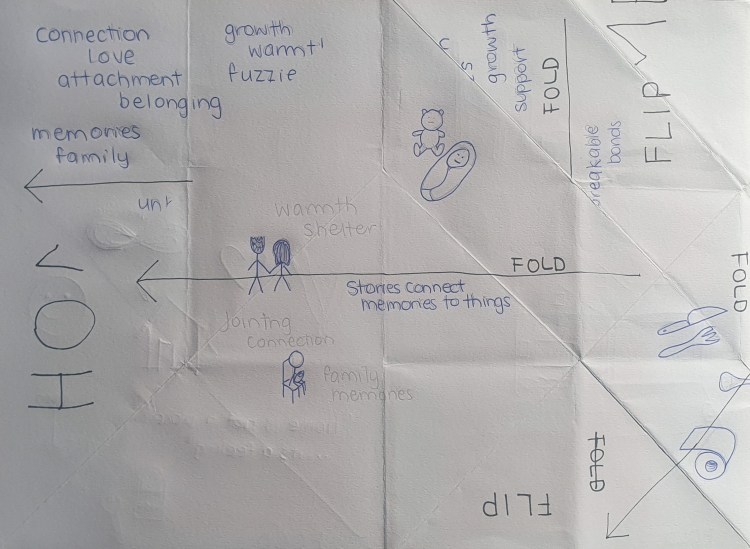 connection
love
attachment
belonging
memories
family
growth
fuzzie
growth
support
FOLD
FLIP
bonds
warmth
shelter
FOLD
Stories connect
memories to things
Joining
connection
family
memories
FOLD
FOLD
FLIP